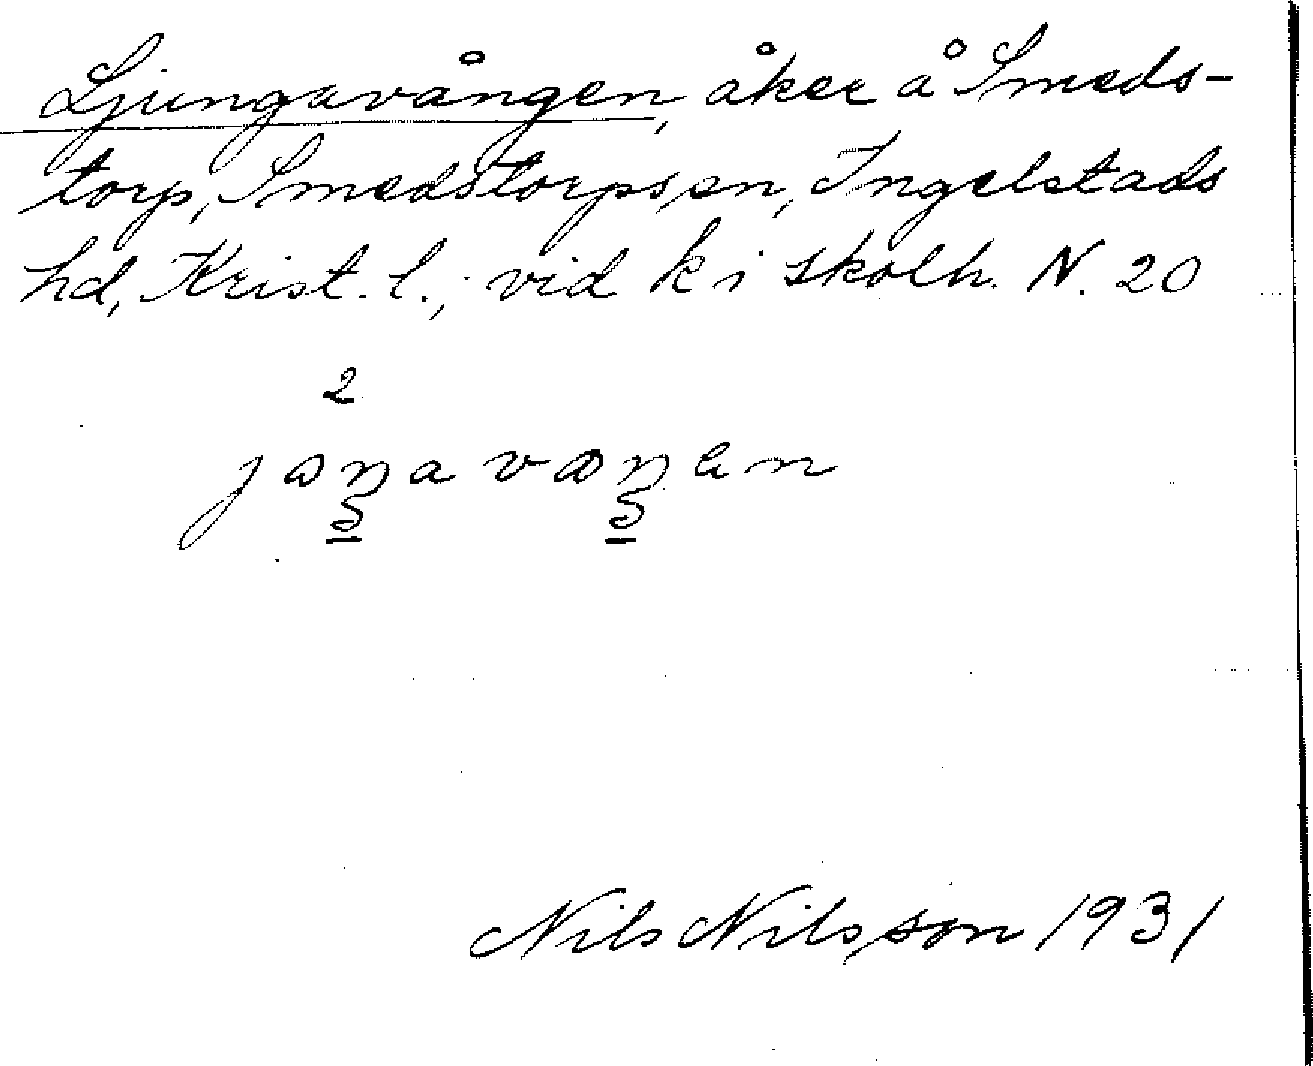 Ljungavången, åker å Smeds-
torp, Smedstorps sn, Ingelstads
hd, Krist. l.; vid k i skolh. N. 20
2
Nils Nilsson 1931